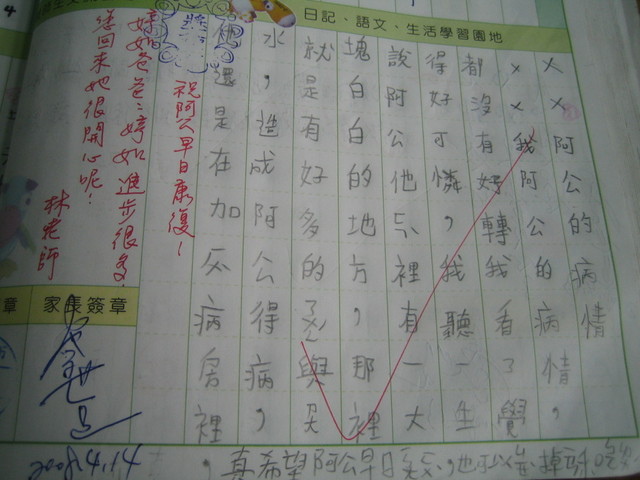 日記、語文、生活學習園地
××阿公的病情
××我阿公的病情，
都沒有好轉我看了覺
得好可憐，我聽一生
說阿公他心裡有一大
塊白白的地方，那裡
就是有好多的
水，造成阿公得病，
還是在加 病房裡
，真希望阿公早日
祝阿公早日康復！
婷如爸爸：婷如進步很多
您回來她很開心呢！
林老師
家長簽章
章
2008.4.14
4